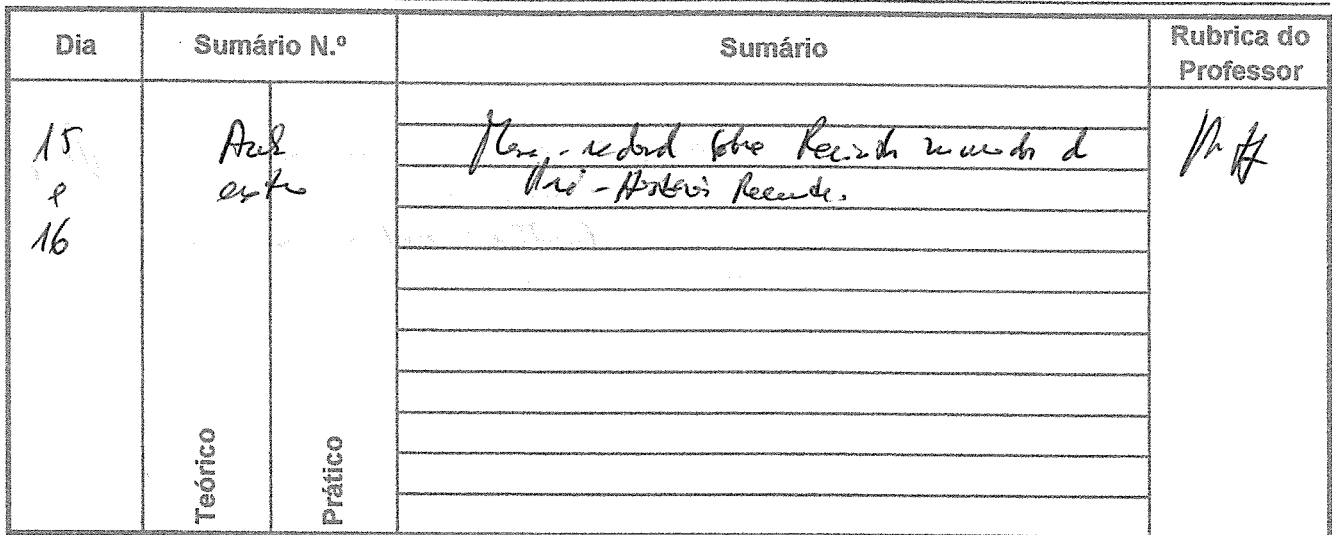 Dia
Sumário N.º
Sumário
Rubrica do
Professor
15
e
16
Aula
extra
Mesa-redonda sobre Recintos murados da
Pré-História Recente.
Teórico
Prático